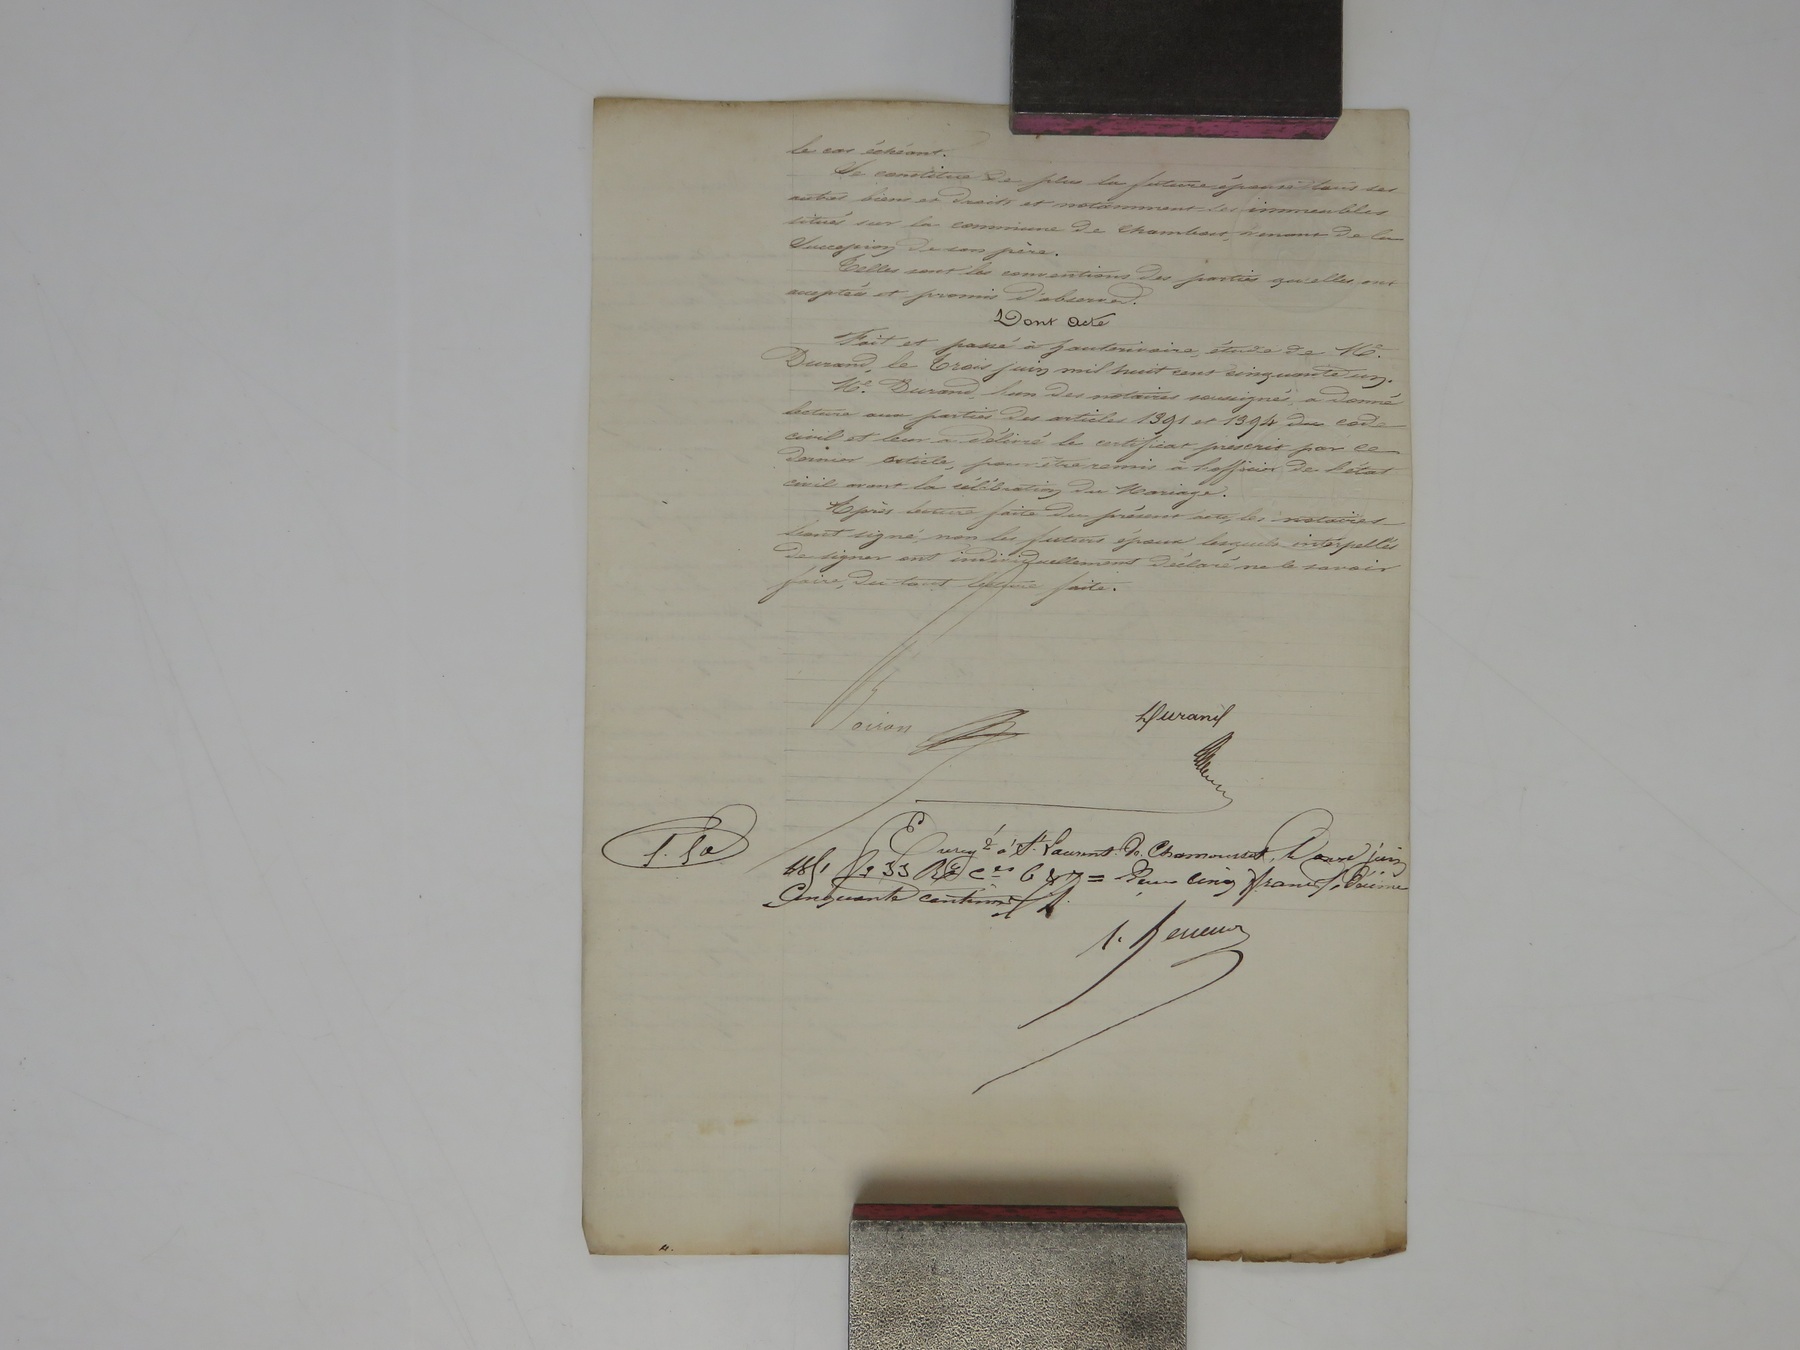 le cas échéant.
Se constitue de plus la future épouse tous ses
autres biens et droits et notamment ses immeubles
situés sur la commune de Chambost, venant de la
Succession de son père.
Telles sont les conventions des parties qu'elles ont
acceptées et promis d'observer.
Dont acte
Fait et passé à hauterivoire, étude de Me.
Durand, le Trois juin mil huit cent cinquante un.
Me. Durand, l'un des notaires soussignés, a donné
lecture aux parties des articles 1391 et 1394 du code
civil et leur a délivré le certificat prescrit par ce
dernier article, pour être remis à l'officier de l'état
civil avant la célébration du Mariage.
Après lecture faite du présent acte, les notaires
l'ont signé non les futurs époux lesquels interpellés
de signer ont individuellement déclaré ne le savoir
faire, de tout lecture faite.
Durand
Enregé à St. Laurent de Chamousset, le onze juin
1851 fo 33 Ro cses 6 & 7 = Reçu cinq francs, Décime
Cinquante centimes
5. 50